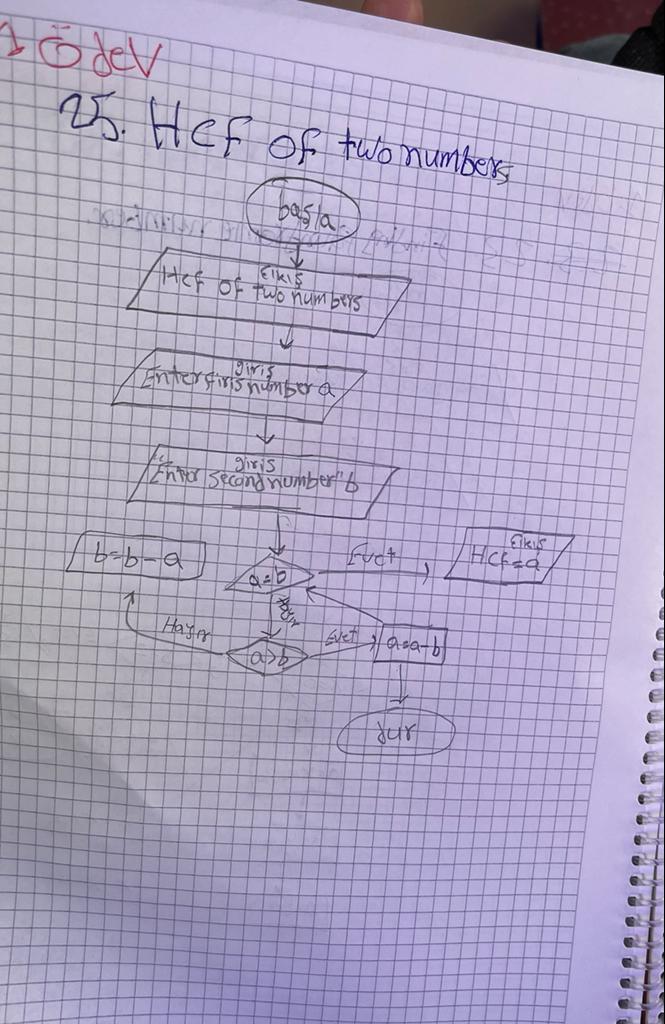 1 ÖdeV
25. Hcf Of two numbers
başla
Eıkış
Hcf Of two numbers
giriş
Enter firis number a
giris
"Enter Second number" b
b=b-a
a=b
Evet
Eıkış
Hcf=a
Hayır
Hayır
a>b
Evet
a=a-b
dur